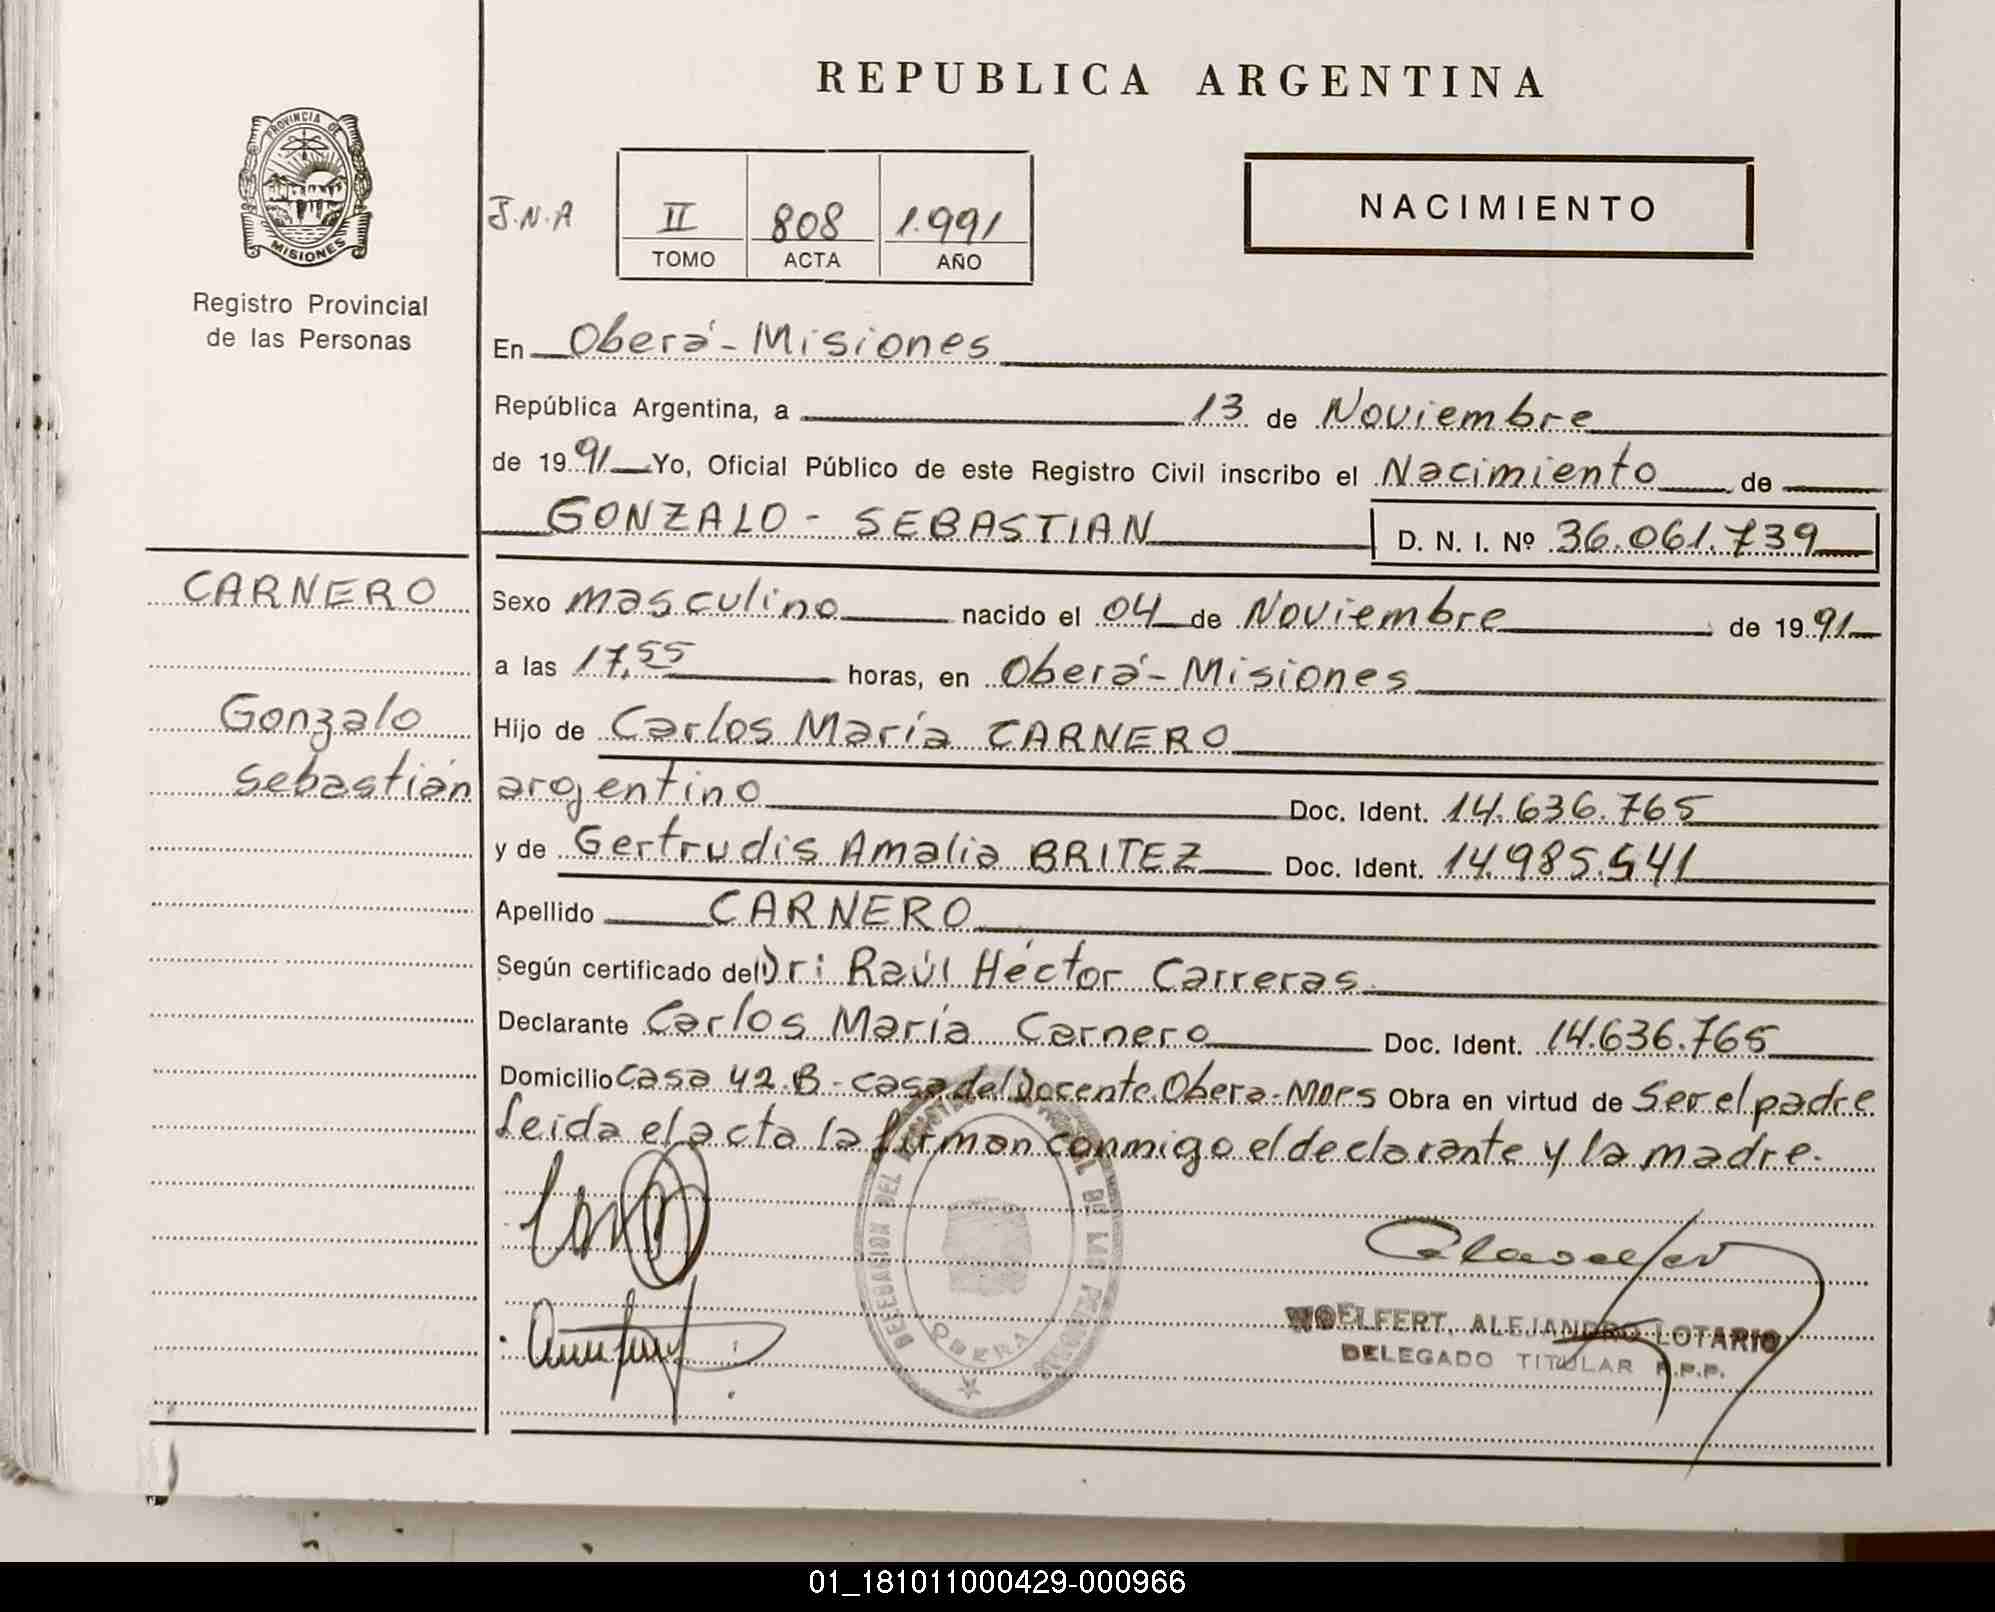 REPUBLICA ARGENTINA
PROVINCIA DE
MISIONES
Registro Provincial
de las Personas
J.N.A
II 808 1.991
TOMO ACTA AÑO
NACIMIENTO
En Oberá - Misiones
República Argentina, a 13 de Noviembre
de 1991 Yo, Oficial Público de este Registro Civil inscribo el Nacimiento de
GONZALO - SEBASTIAN D. N. I. Nº 36.061.739
CARNERO
Gonzalo
Sebastián
Sexo masculino nacido el 04 de Noviembre de 1991
a las 17,55 horas, en Oberá - Misiones
Hijo de Carlos María CARNERO
argentino Doc. Ident. 14.636.765
y de Gertrudis Amalia BRITEZ Doc. Ident. 14.985.541
Apellido CARNERO
Según certificado del Dr: Raúl Héctor Carreras
Declarante Carlos María Carnero Doc. Ident. 14.636.765
Domicilio Casa 42.B - casa del Docente. Obera - Mnes Obra en virtud de Ser el padre
Leida el acta la firman conmigo el declarante y la madre.
DELEGACION DEL DE LAS
OBERA
WOELFERT, ALEJANDRO LOTARIO
DELEGADO TITULAR R.P.P.
01_181011000429-000966